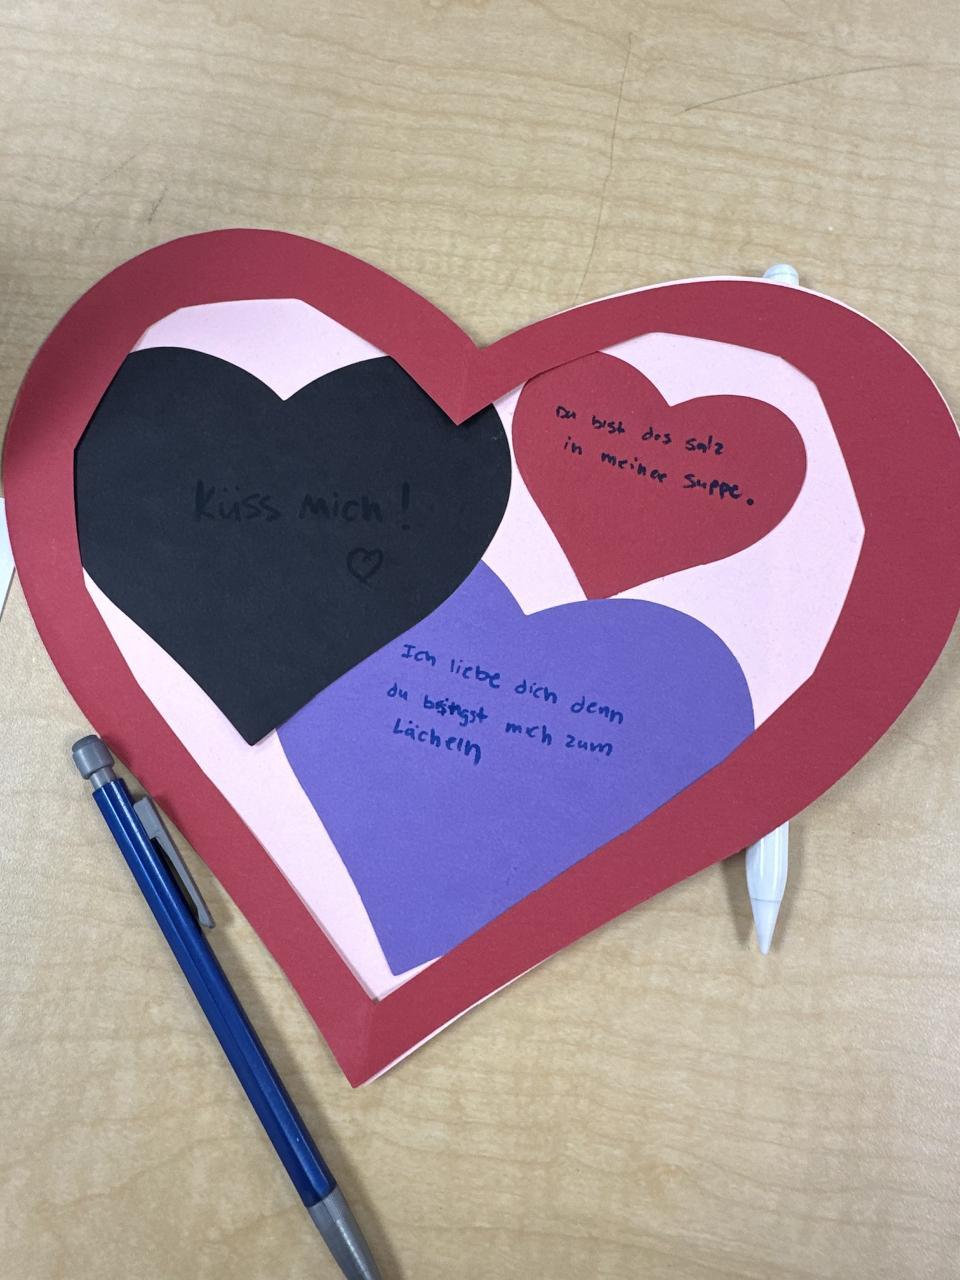 Küss mich!
♡
Du bist das salz
in meiner suppe.
Ich liebe dich denn
du bringst mich zum
Lächeln